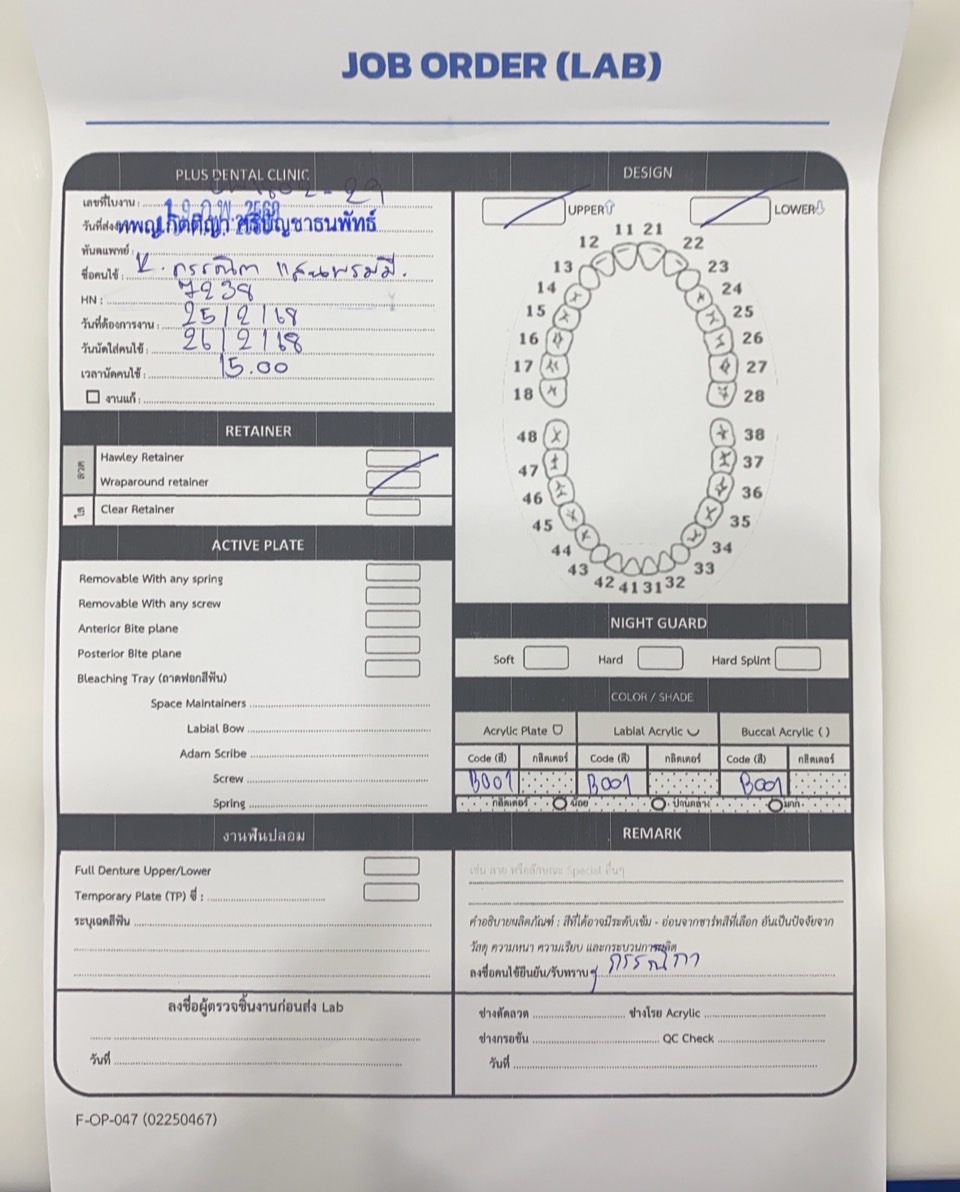 JOB ORDER (LAB)
PLUS DENTAL CLINIC
เลขที่ใบงาน :
วันที่ส่ง
ทพญ.กิตติญา ศรีบัญชาธนพัทธ์
ทันตแพทย์ :
ชื่อคนไข้ : K. กรรณิกา แสนพรมมี.
HN : 7238
วันที่ต้องการงาน : 25/2/68
วันนัดใส่คนไข้ : 26/2/68
เวลานัดคนไข้ : 15.00
งานแก้ :
RETAINER
ลวด
Hawley Retainer
Wraparound retainer
ใส
Clear Retainer
ACTIVE PLATE
Removable With any spring
Removable With any screw
Anterior Bite plane
Posterior Bite plane
Bleaching Tray (ถาดฟอกสีฟัน)
Space Maintainers
Labial Bow
Adam Scribe
Screw
Spring
งานฟันปลอม
Full Denture Upper/Lower
Temporary Plate (TP) ซี่ :
ระบุเฉดสีฟัน
ลงชื่อผู้ตรวจชิ้นงานก่อนส่ง Lab
วันที่
DESIGN
UPPER LOWER
11 21
12 22
13 23
14 24
15 25
16 26
17 27
18 28
48 38
47 37
46 36
45 35
44 34
43 33
42 41 31 32
NIGHT GUARD
Soft Hard Hard Splint
COLOR / SHADE
Acrylic Plate Labial Acrylic Buccal Acrylic ( )
Code (สี) กลิตเตอร์ Code (สี) กลิตเตอร์ Code (สี) กลิตเตอร์
B001 B001 B001
กลิตเตอร์ น้อย ปานกลาง มาก
REMARK
เช่น ลาย หรือลักษณะ Special อื่นๆ
คำอธิบายผลิตภัณฑ์ : สีที่ได้อาจมีระดับเข้ม - อ่อนจากชาร์ทสีที่เลือก อันเป็นปัจจัยจาก
วัสดุ ความหนา ความเรียบ และกระบวนการผลิต
ลงชื่อคนไข้ยืนยัน/รับทราบ กรรณิกา
ช่างดัดลวด ช่างโรย Acrylic
ช่างกรอขัน QC Check
วันที่
F-OP-047 (02250467)